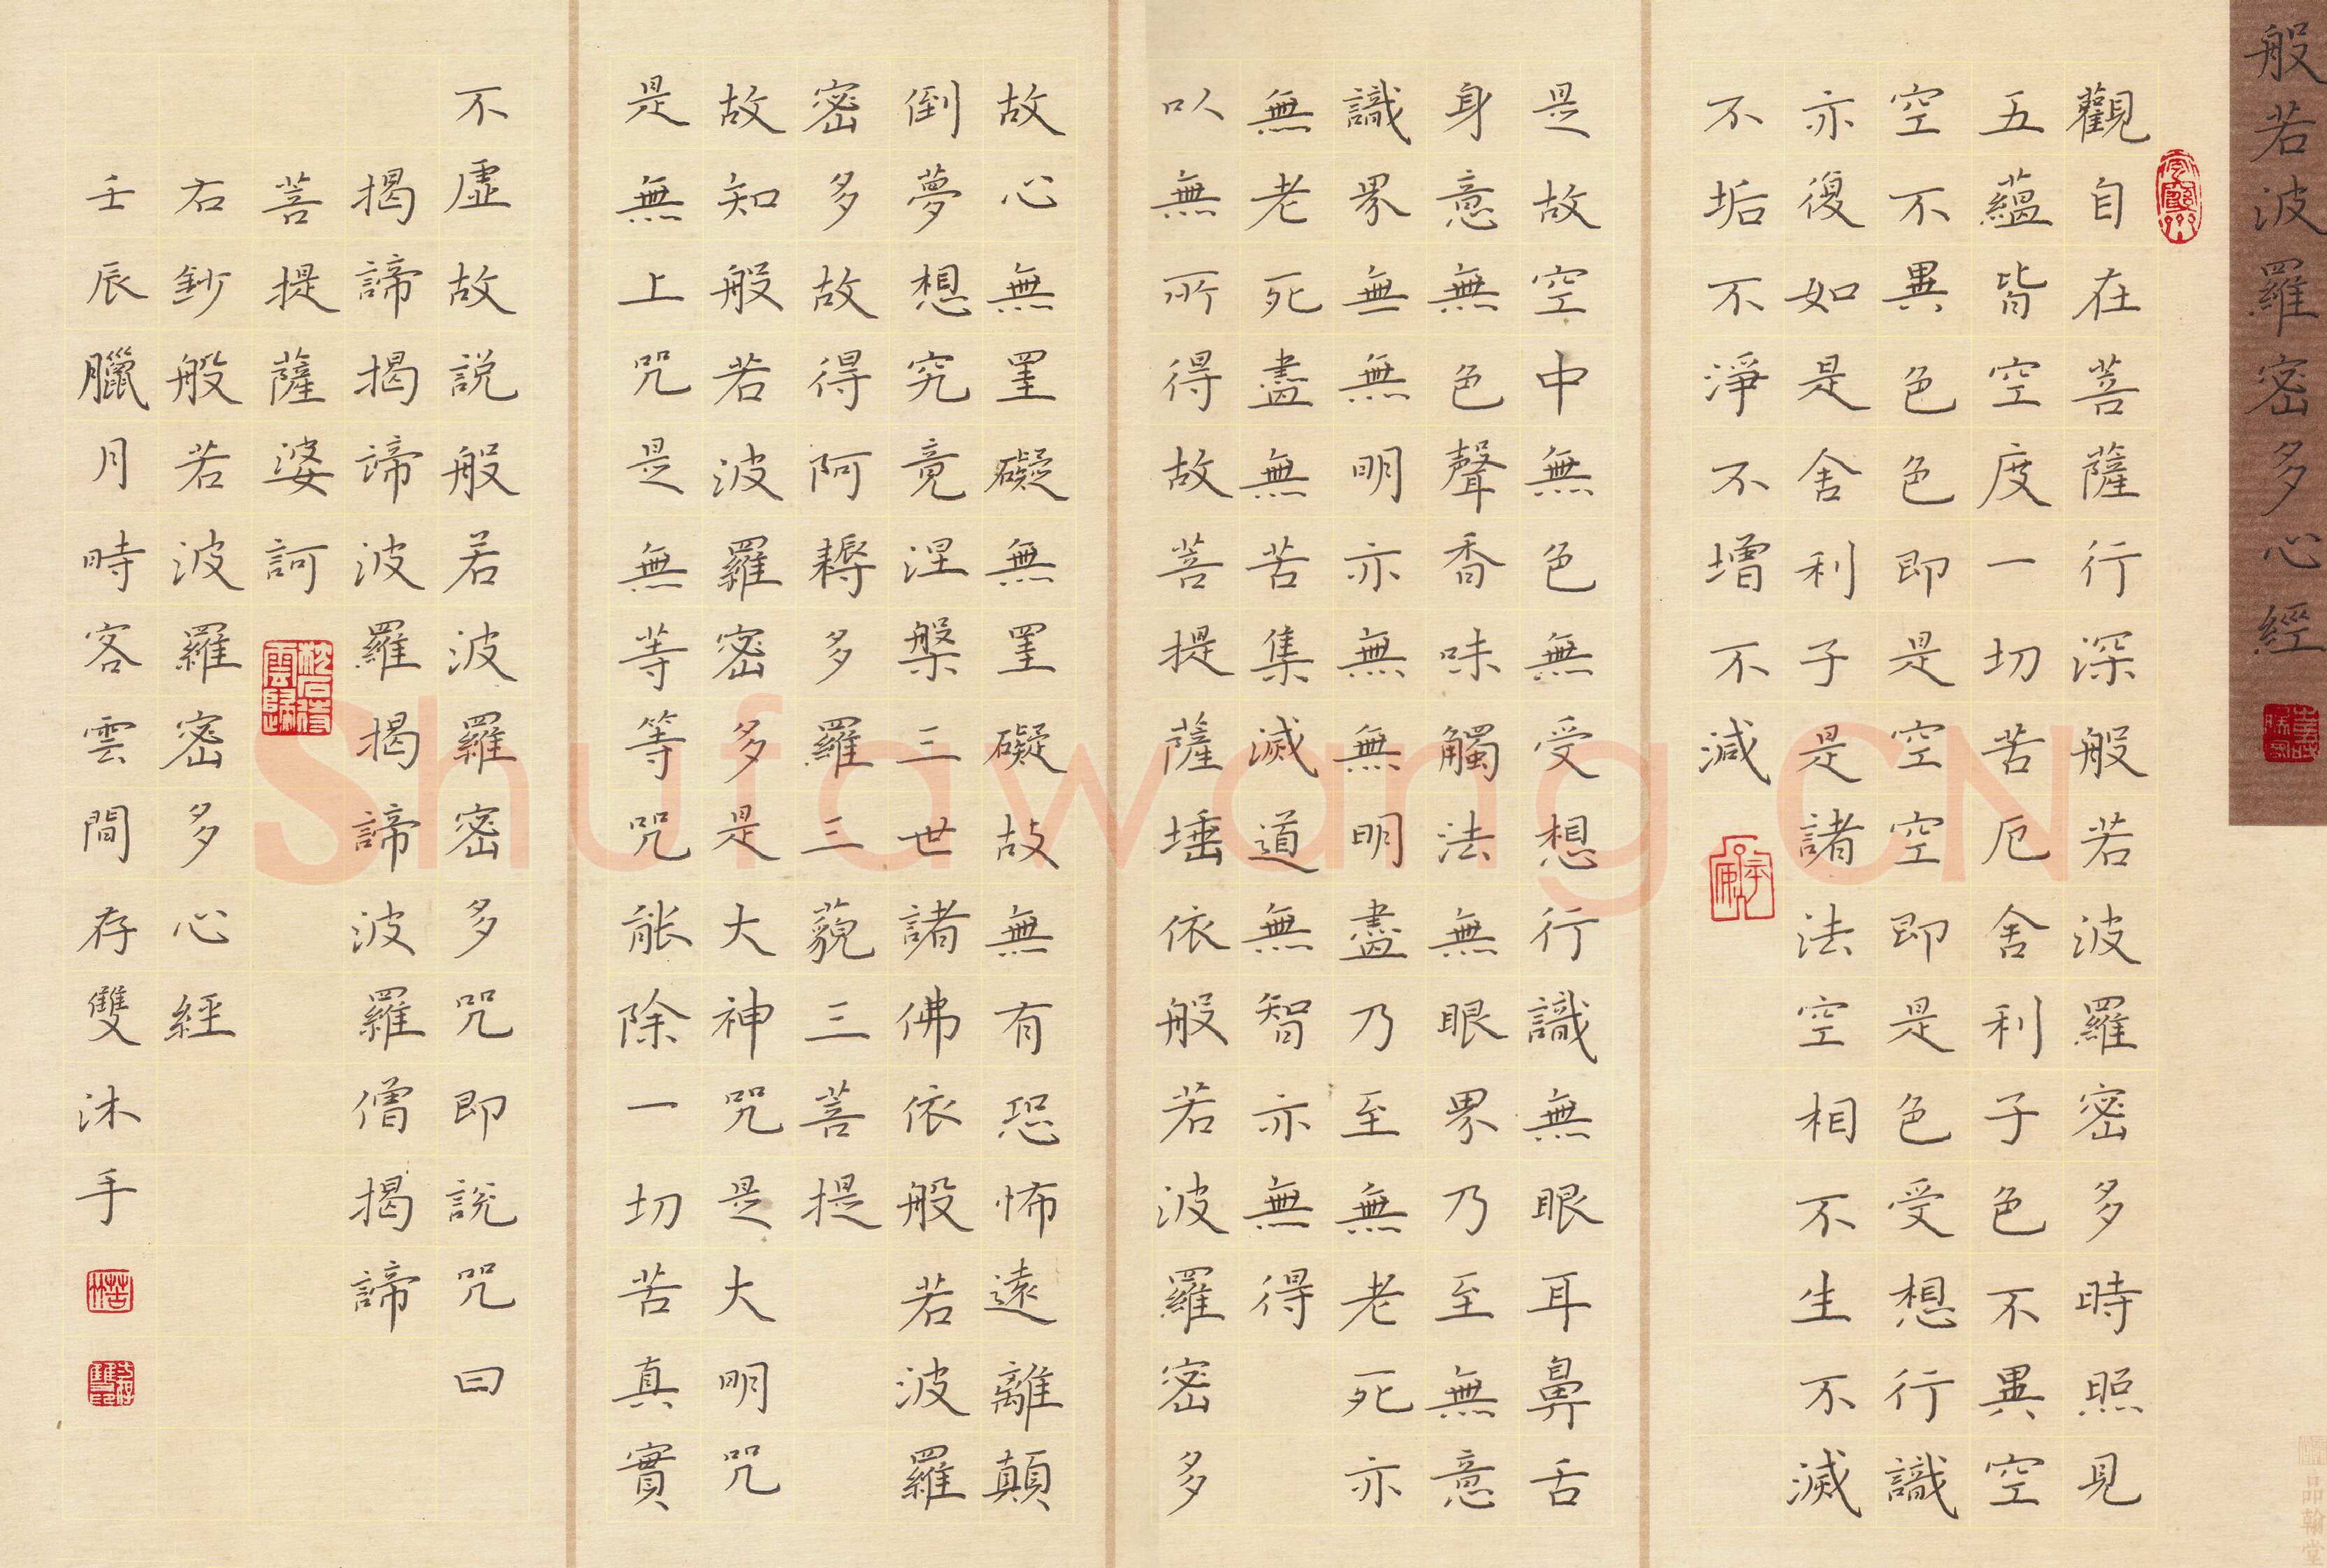 般若波羅密多心經
觀自在菩薩行深般若波羅密多時照見
五蘊皆空度一切苦厄舍利子色不異空
空不異色色即是空空即是色受想行識
亦復如是舍利子是諸法空相不生不滅
不垢不淨不增不減
是故空中無色無受想行識無眼耳鼻舌
身意無色聲香味觸法無眼界乃至無意
識界無無明亦無無明盡乃至無老死亦
無老死盡無苦集滅道無智亦無得
以無所得故菩提薩埵依般若波羅密多
故心無罣礙無罣礙故無有恐怖遠離顛
倒夢想究竟涅槃三世諸佛依般若波羅
密多故得阿耨多羅三藐三菩提
故知般若波羅密多是大神咒是大明咒
是無上咒是無等等咒能除一切苦真實
不虛故說般若波羅密多咒即說咒曰
揭諦揭諦波羅揭諦波羅僧揭諦
菩提薩婆訶
右鈔般若波羅密多心經
壬辰臘月時客雲間存雙沐手
Shufawang.CN
品翰堂